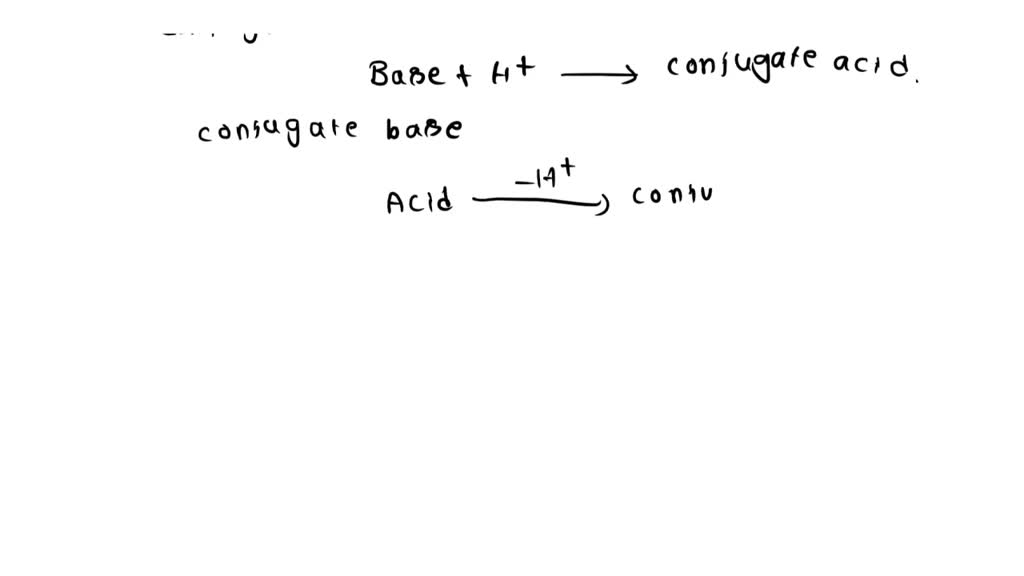 Base + H+ → conjugate acid.
conjugate base
-H+
Acid → conju